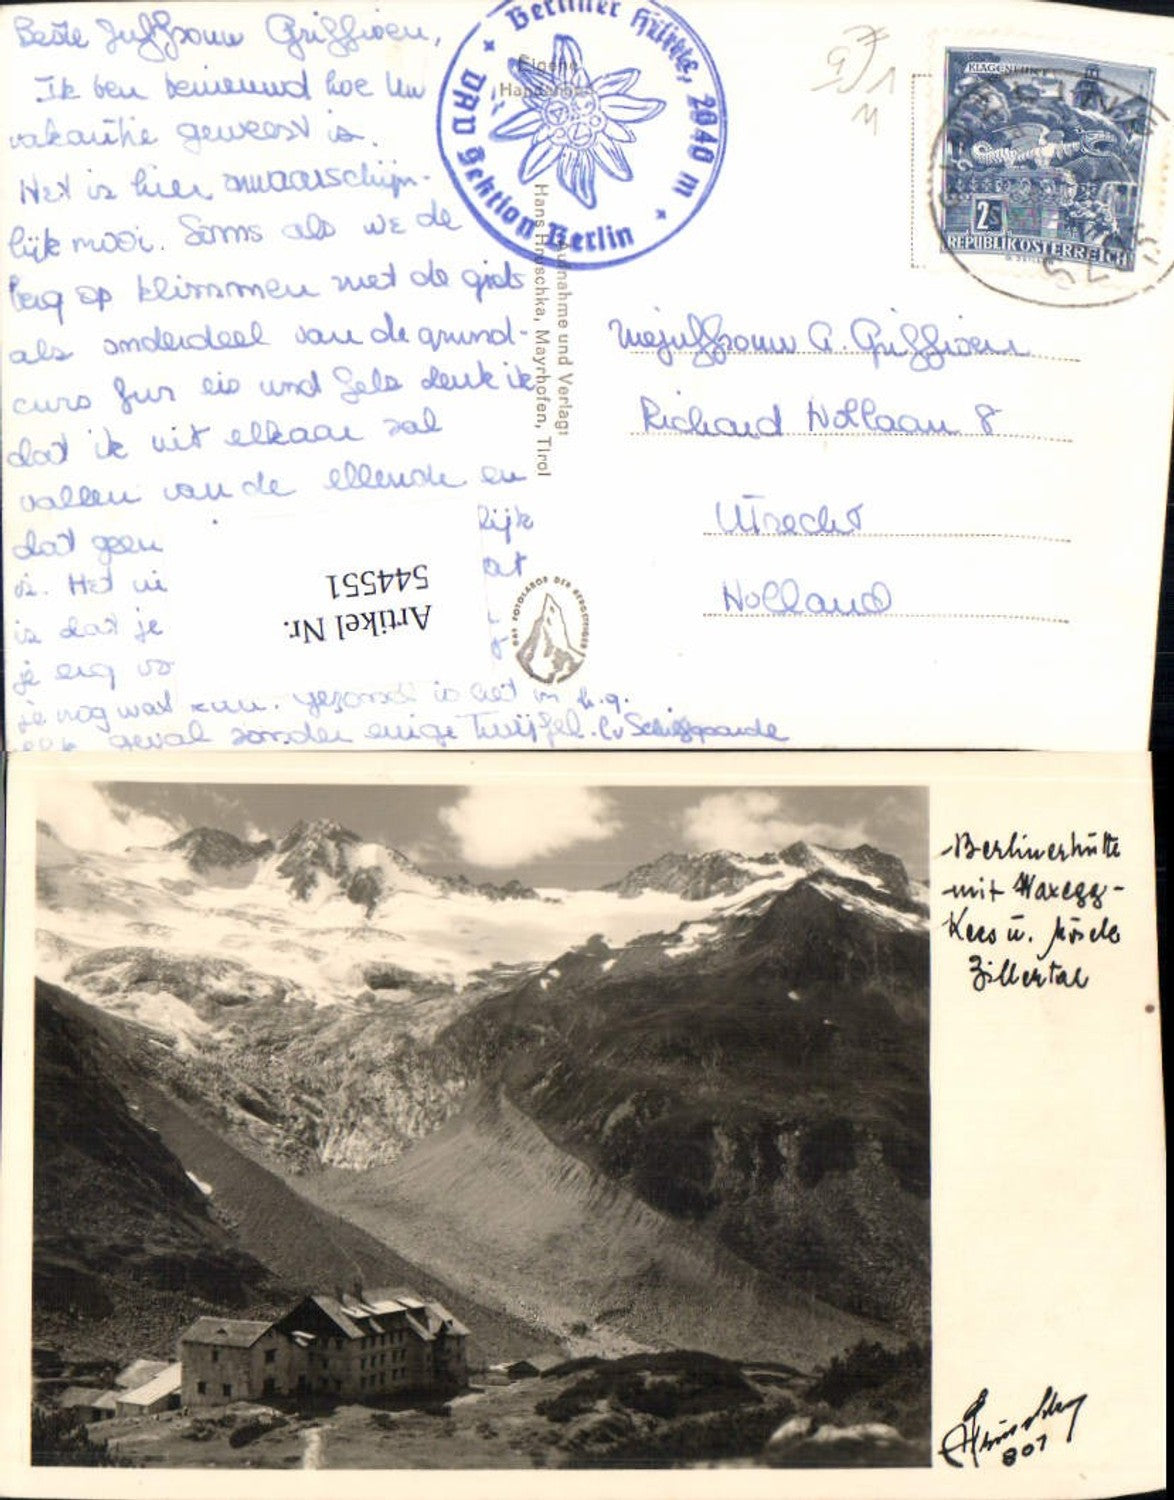 Beste Juffrouw Griffioen,
Ik ben benieuwd hoe Uw
vakantie geweest is.
Het is hier onwaarschijn-
lijk mooi. Soms als we de
berg op klimmen met de gids
als onderdeel van de grund-
curs fur eis und fels denk ik
dat ik uit elkaar zal
vallen van de ellende en
dat geen
lijk
is. Het
at
is dat je
je erg
je nog wat kun. gezond is het in h.g.
geval zonder enige twijfel. C v Schifgaarde
Berliner Hütte, 2040 m
DAV Sektion Berlin
Eigene
Aufnahme und Verlag:
Hans Hruschka, Mayrhofen, Tirol
DAS FOTOLABOR DER BERGSTEIGER
Artikel Nr.
544551
KLAGENFURT
2S
REPUBLIK ÖSTERREICH
75
Mejuffrouw A. Griffioen
Richard Hollaan 8
Utrecht
Holland
Berlinerhütte
mit Waxegg-
Kees u. Mösele
Zillertal
Hruschka
807